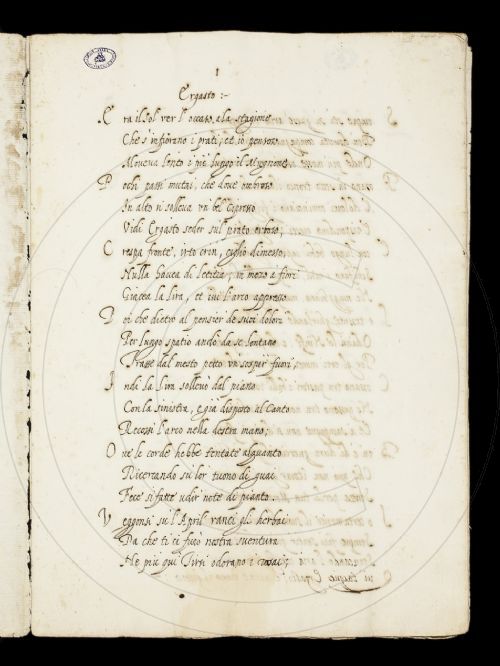 1
Ergasto :~
Era il Sol ver l'occaso, a la stagione
Che s'infiorano i prati, et io pensoso
Moveva lento il piè lungo il Mugnone
Pochi passi mutai, che dove ombroso
In alto si solleva un bel Cipresso
Vidi Ergasto seder sul prato erboso;
Crespa fronte, irto crin, ciglio dimesso,
Nulla havea di letitia; in mezo a fiori
Giacea la lira, et ivi l'arco appresso
Poi che dietro al pensier de suoi dolori
Per lungo spatio andò da se lontano
Trasse dal mesto petto un sospir fuori,
Indi la lira sollevò dal piano
Con la sinistra, e già disposto al Canto
Recossi l'arco nella destra mano;
Ove le corde hebbe tentate alquanto
Ricercando su lor tuono di guai
Fece si fatte udir note di pianto.
Veggonsi su l'April vanti gli herbai
Da che ti ci furò nostra sventura
Ne più qui Tirsi odorano i rosai;